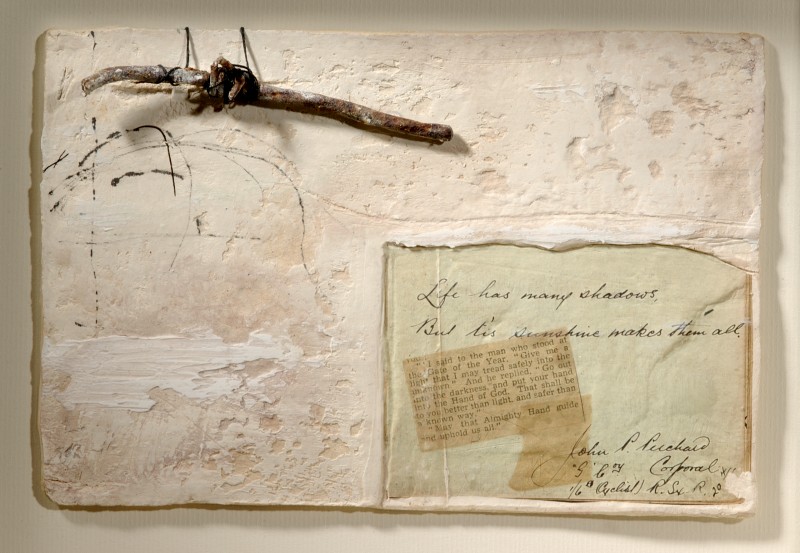 Life has many shadows,
But tis sunshine makes them all.
"I said to the man who stood at
the Gate of the Year, "Give me a
light that I may tread safely into the
unknown." And he replied, "Go out
into the darkness, and put your hand
into the Hand of God. That shall be
to you better than light, and safer than
a known way."
"May that Almighty Hand guide
and uphold us all."
John P.
Corporal
(Cyclist) R. Sx. R.